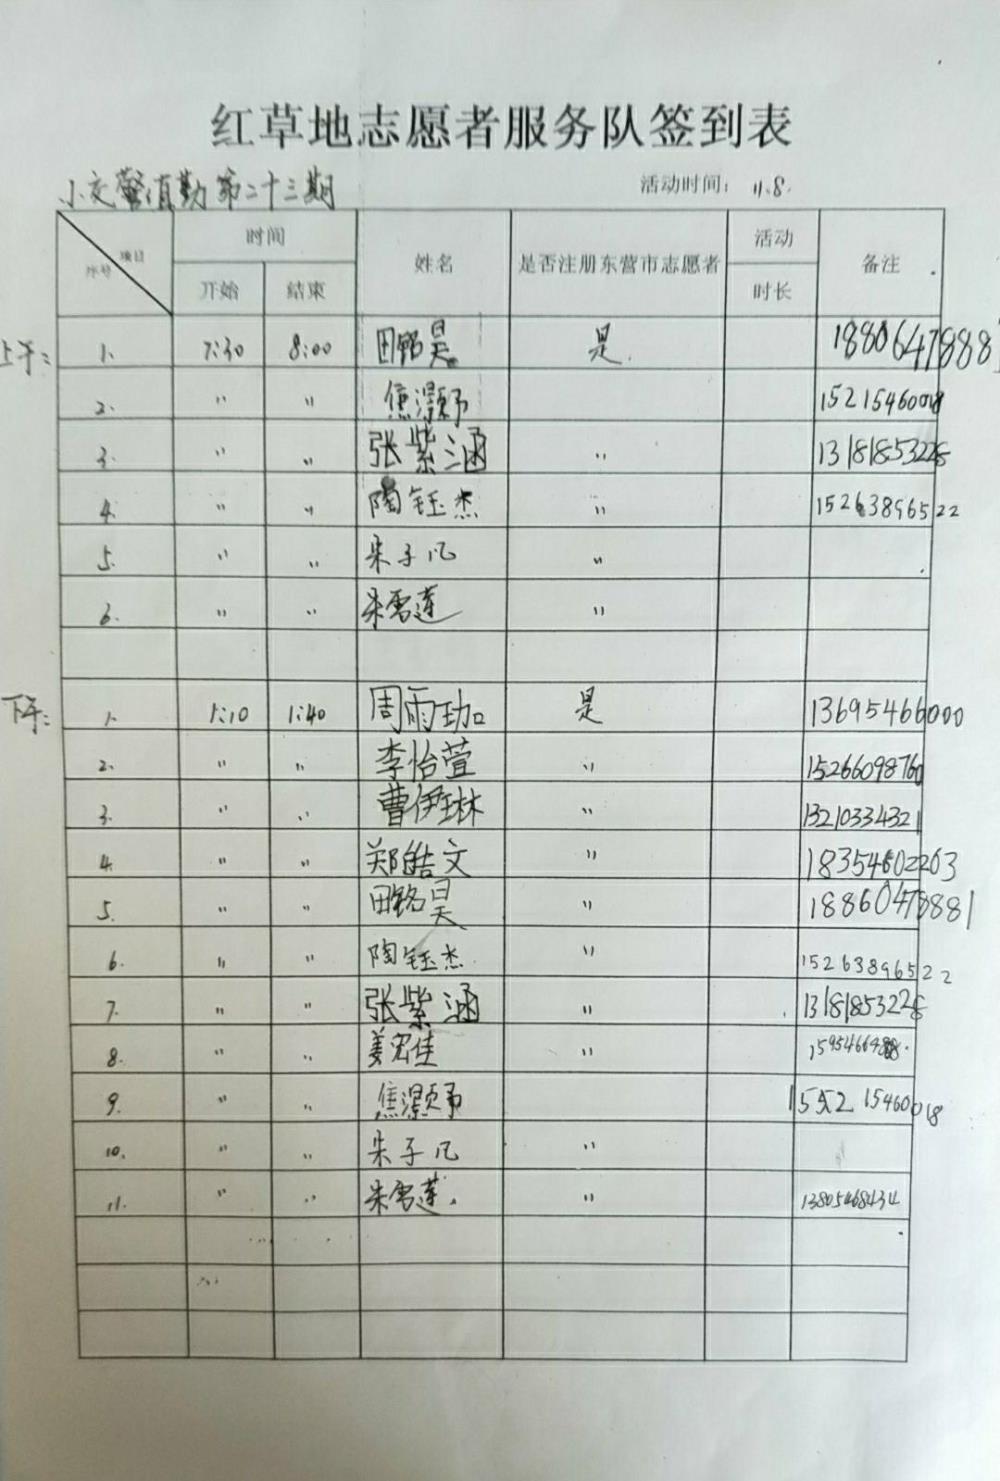 红草地志愿者服务队签到表
小交警值勤第二十三期 活动时间: 11.8.
项目 序号 时间 姓名 是否注册东营市志愿者 活动 备注
开始 结束 时长
上午: 1. 7:30 8:00 田铭昊 是.
2. " " 焦灏予 15215460018
3. " " 张紫涵 " 13181853228
4. " " 陶钰杰 " 15263896522
5. " " 朱子凡 "
6. " " 朱雪莲 "
下午: 1. 1:10 1:40 周雨珈 是 13695466000
2. " " 李怡萱 " 15266098760
3. " " 曹伊琳 " 13210334321
4. " " 郑皓文 " 18354602203
5. " " 田铭昊 "
6. " " 陶钰杰. " 15263896522
7. " " 张紫涵 " 13181853228
8. " " 姜宏佳 "
9. " " 焦灏予
10. " " 朱子凡 "
11. " " 朱雪莲. " 13805468434